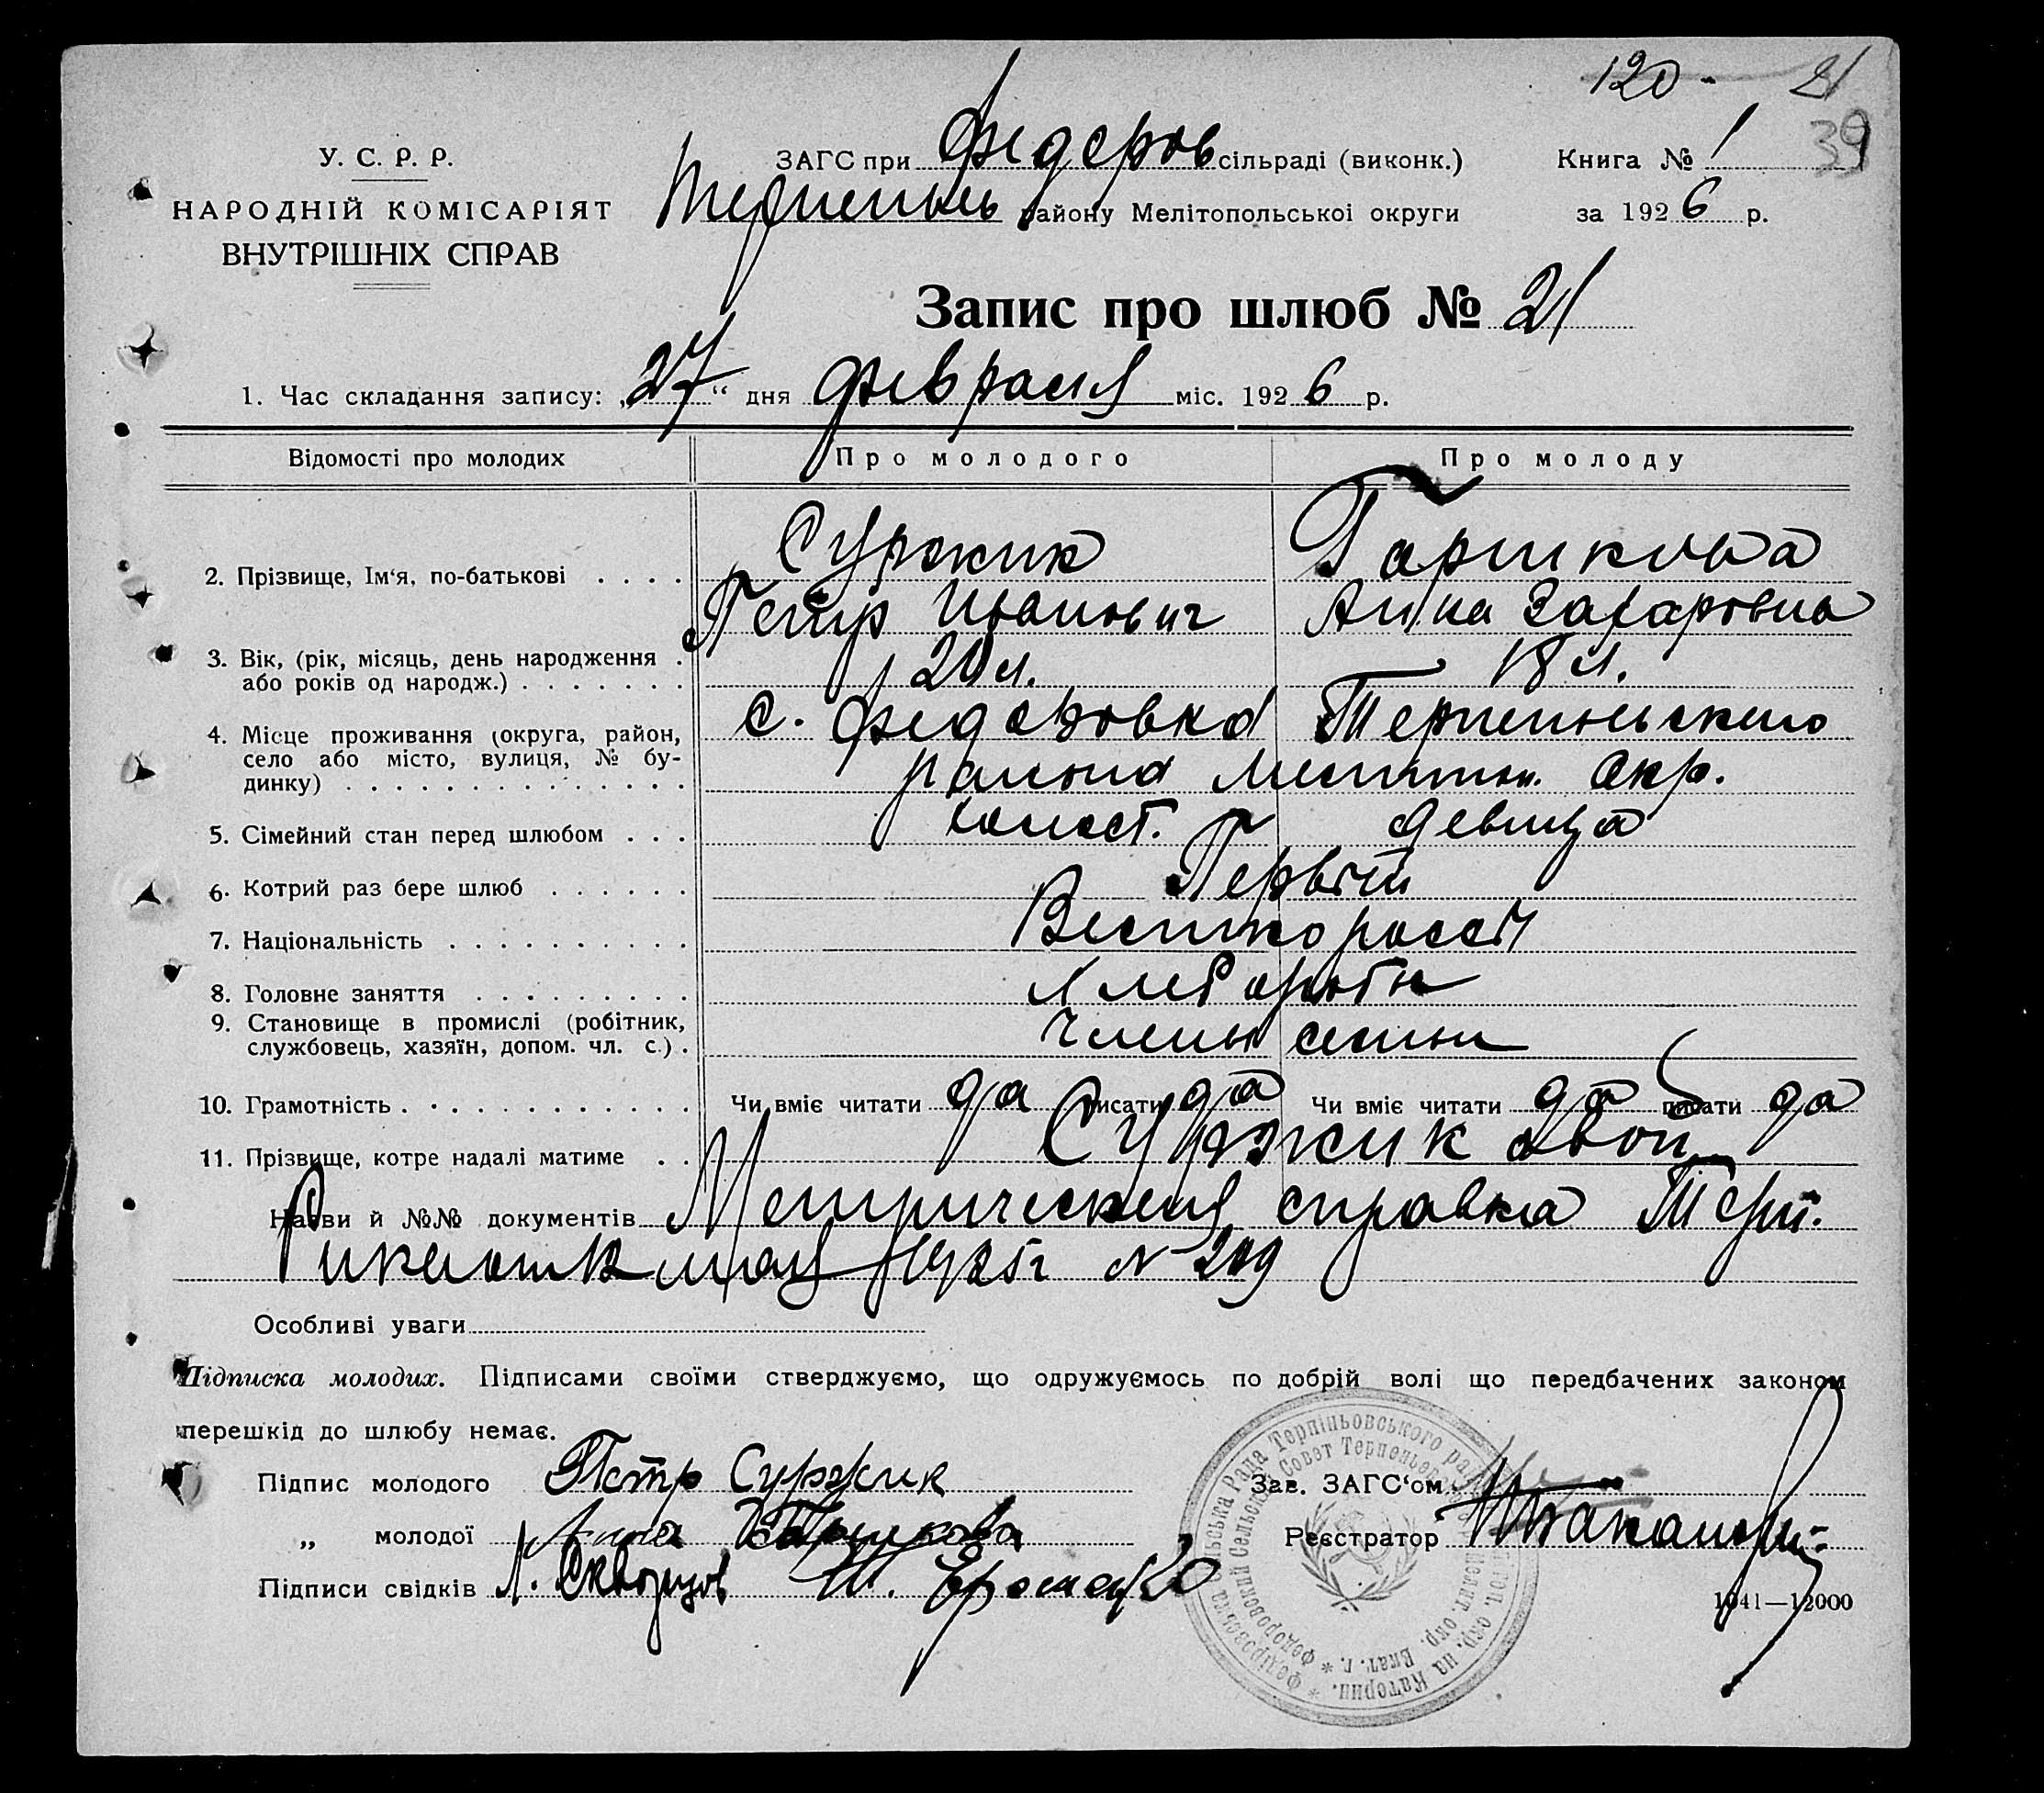 120 - 21
39
У. С. Р. Р.
НАРОДНІЙ КОМІСАРІЯТ
ВНУТРІШНІХ СПРАВ
ЗАГС при Федоров сільраді (виконк.) Книга № 1
Терпеньев району Мелітопольської округи за 1926 р.
Запис про шлюб № 21
1. Час складання запису: „27“ дня февраля міс. 1926 р.
Відомості про молодих Про молодого Про молоду
2. Прізвище, Ім‘я, по-батькові . . . . Суржик Горшкова
Петр Иванович Анна Захаровна
3. Вік, (рік, місяць, день народження .
або років од народж.) . . . . . . . 20 л. 18 л.
4. Місце проживання (округа, район, с. Федоровка Терпеньевского
село або місто, вулиця, № бу-
динку) . . . . . . . . . . . . . . района Мелитоп. Окр.
5. Сімейний стан перед шлюбом . . . холост. девица
6. Котрий раз бере шлюб . . . . . . Первый
7. Національність . . . . . . . . . . . Великороссы
8. Головне заняття . . . . . . . . . Хлебороб
9. Становище в промислі (робітник,
службовець, хазяїн, допом. чл. с.) . члены семьи
10. Грамотність . . . . . . . . . . . . Чи вміє читати да писати да Чи вміє читати да писати да
11. Прізвище, котре надалі матиме . . Суржик
Назви й №№ документів Метрическая справка Терп.
Рика 1925 г N 209
Особливі уваги
Підписка молодих. Підписами своїми стверджуємо, що одружуємось по добрій волі що передбачених законом
перешкід до шлюбу немає.
Підпис молодого Петр Суржик Зав. ЗАГС‘ом
„ молодої Анна Горшкова Реєстратор
Підписи свідків Л. Скворцов
1041—12000